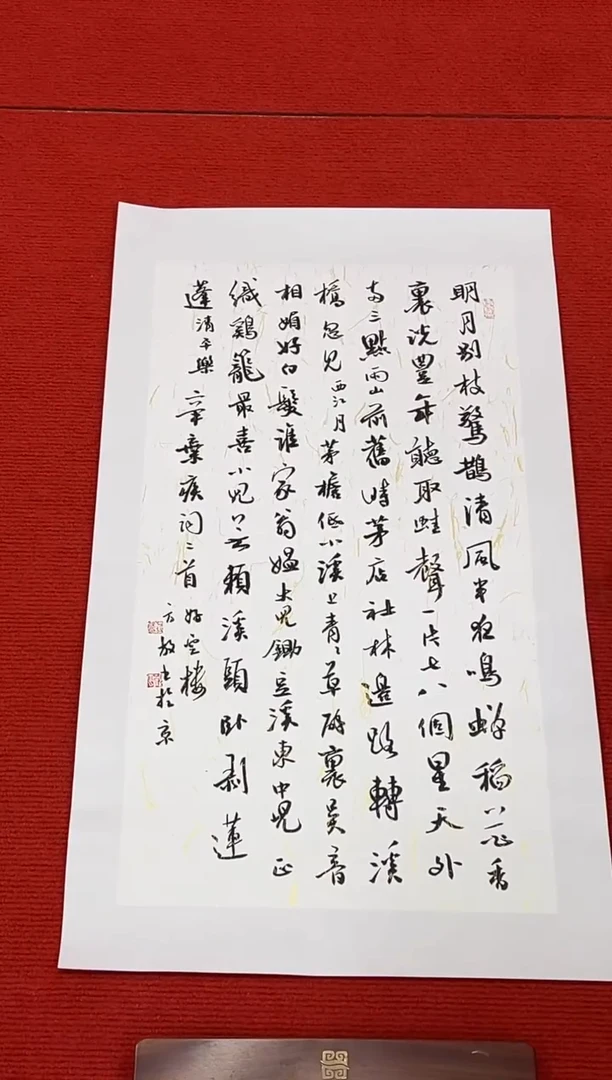 明月别枝驚鵲清風半夜鳴蟬稻花香
裏說豐年聽取蛙聲一片七八個星天外
兩三點雨山前舊時茅店社林邊路轉溪
橋忽見西江月茅檐低小溪上青〻草醉裏吳音
相媚好白髮誰家翁媼大兒鋤豆溪東中兒正
織鷄籠最喜小兒亡賴溪頭卧剥蓮
蓬清平樂辛棄疾詞二首
雲樓
方放書於京